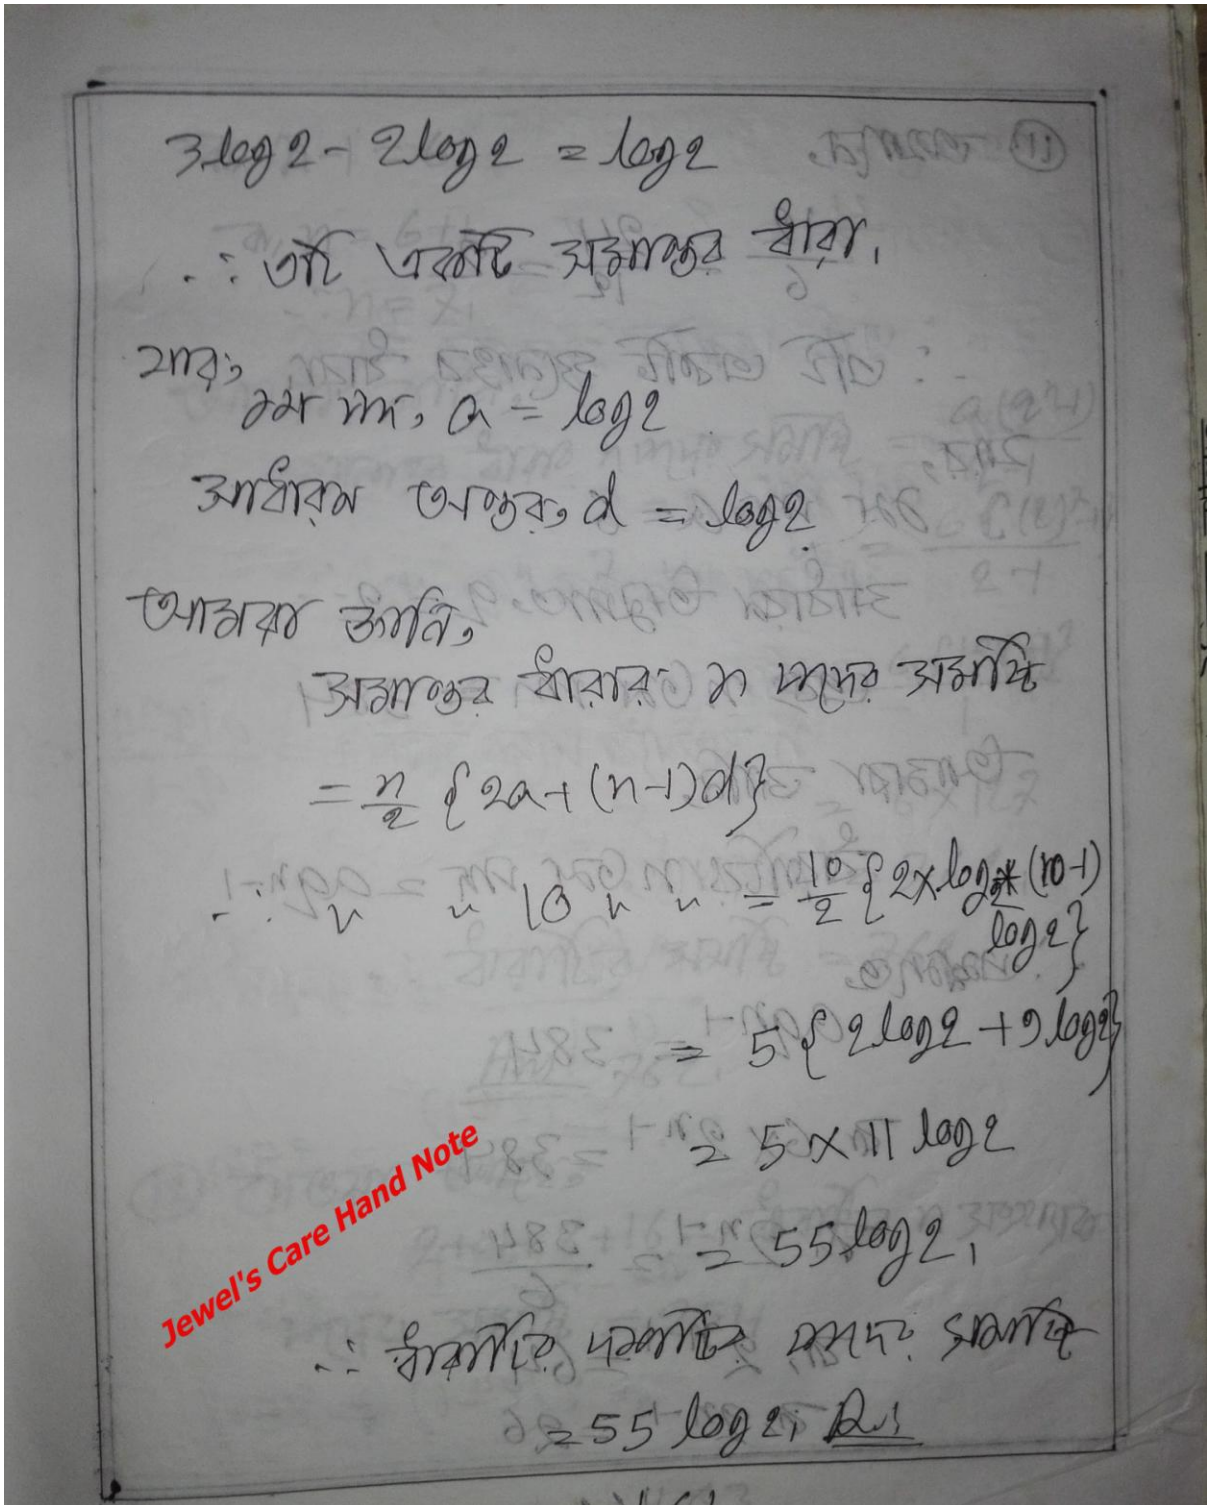 3log2 - 2log2 = log2
∴ এটি একটি সমান্তর ধারা।
যার,
১ম পদ, a = log2
সাধারণ অন্তর, d = log2
আমরা জানি,
সমান্তর ধারার n পদের সমষ্টি
= n/2 {2a + (n-1)d}
∴ " 10 " " = 10/2 {2×log2+ (10-1)
log2}
= 5 {2log2 + 9log2}
= 5 × 11 log2
= 55 log2,
∴ ধারাটির দশটির পদের সমষ্টি
= 55 log2,
Jewel's Care Hand Note